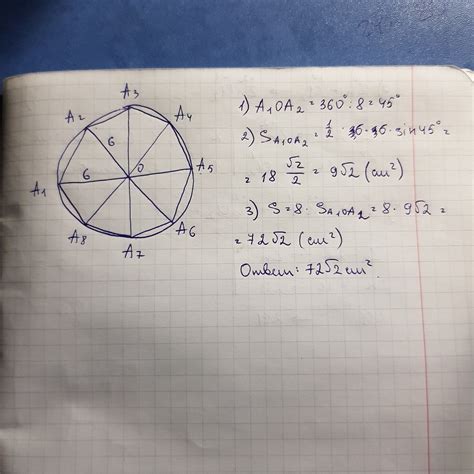 A₃
A₂
A₄
6
A₅
6
O
A₁
A₈
A₆
A₇
1) A₁OA₂ = 360° : 8 = 45°
2) S_A₁OA₂ = 1/2 · 6 · 6 · sin45° =
= 18 √2/2 = 9√2 (см²)
3) S = 8 · S_A₁OA₂ = 8 · 9√2 =
= 72√2 (см²)
Ответ: 72√2 см².